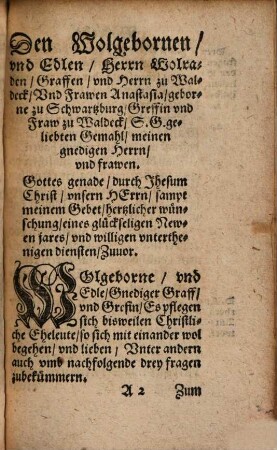 Den Wolgebornen /
vnd Edlen / Herrn Wolra-
den / Graffen / vnd Herrn zu Wal-
deck / Vnd Frawen Anastasia / gebor-
ne zu Schwartzburg / Greffin vnd
Fraw zu Waldeck / S. G. ge-
liebten Gemahl / meinen
gnedigen Herrn /
vnd frawen.
Gottes genade / durch Jhesum
Christ / vnsern HErrn / sampt
meinem Gebet / hertzlicher wün-
schung / eines glückseligen New-
en jares / vnd willigen vnterthe-
nigen diensten / Zuuor.
WOlgeborne / vnd
Edle / Gnediger Graff /
vnd Grefin / Es pflegen
sich bisweilen Christli-
che Eheleute / so sich mit einander wol
begehen / vnd lieben / Vnter andern
auch vmb nachfolgende drey fragen
zubekümmern.
A 2 Zum